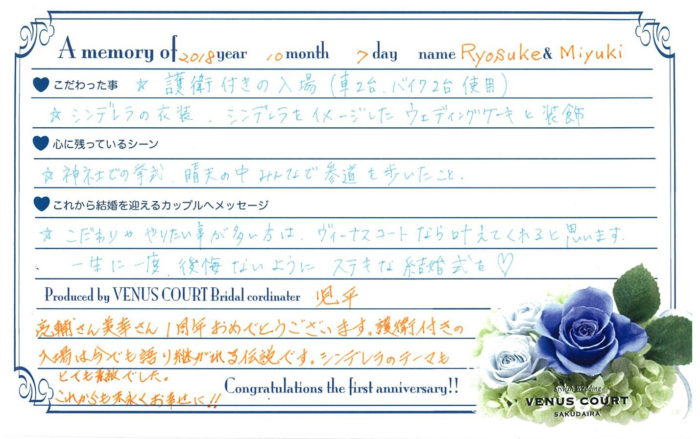 A memory of 2018 year 10 month 7 day name Ryosuke & Miyuki
こだわった事 ☆ 護衛付きの入場(車2台、バイク2台使用)
☆ シンデレラの衣装、シンデレラをイメージしたウェディングケーキと装飾
心に残っているシーン
☆ 神社での挙式、晴天の中みんなで参道を歩いたこと。
これから結婚を迎えるカップルへメッセージ
☆ こだわりややりたい事が多い方は、ヴィーナスコートなら叶えてくれると思います。
一生に一度、後悔ないようにステキな結婚式を♡
Produced by VENUS COURT Bridal cordinater 児平
亮輔さん美幸さん1周年おめでとうございます。護衛付きの
入場は今でも語り継がれる伝説です。シンデレラのテーマも
とても素敵でした。
これからも末永くお幸せに!!
Congratulations the first anniversary!!
VENUS COURT
SAKUDAIRA